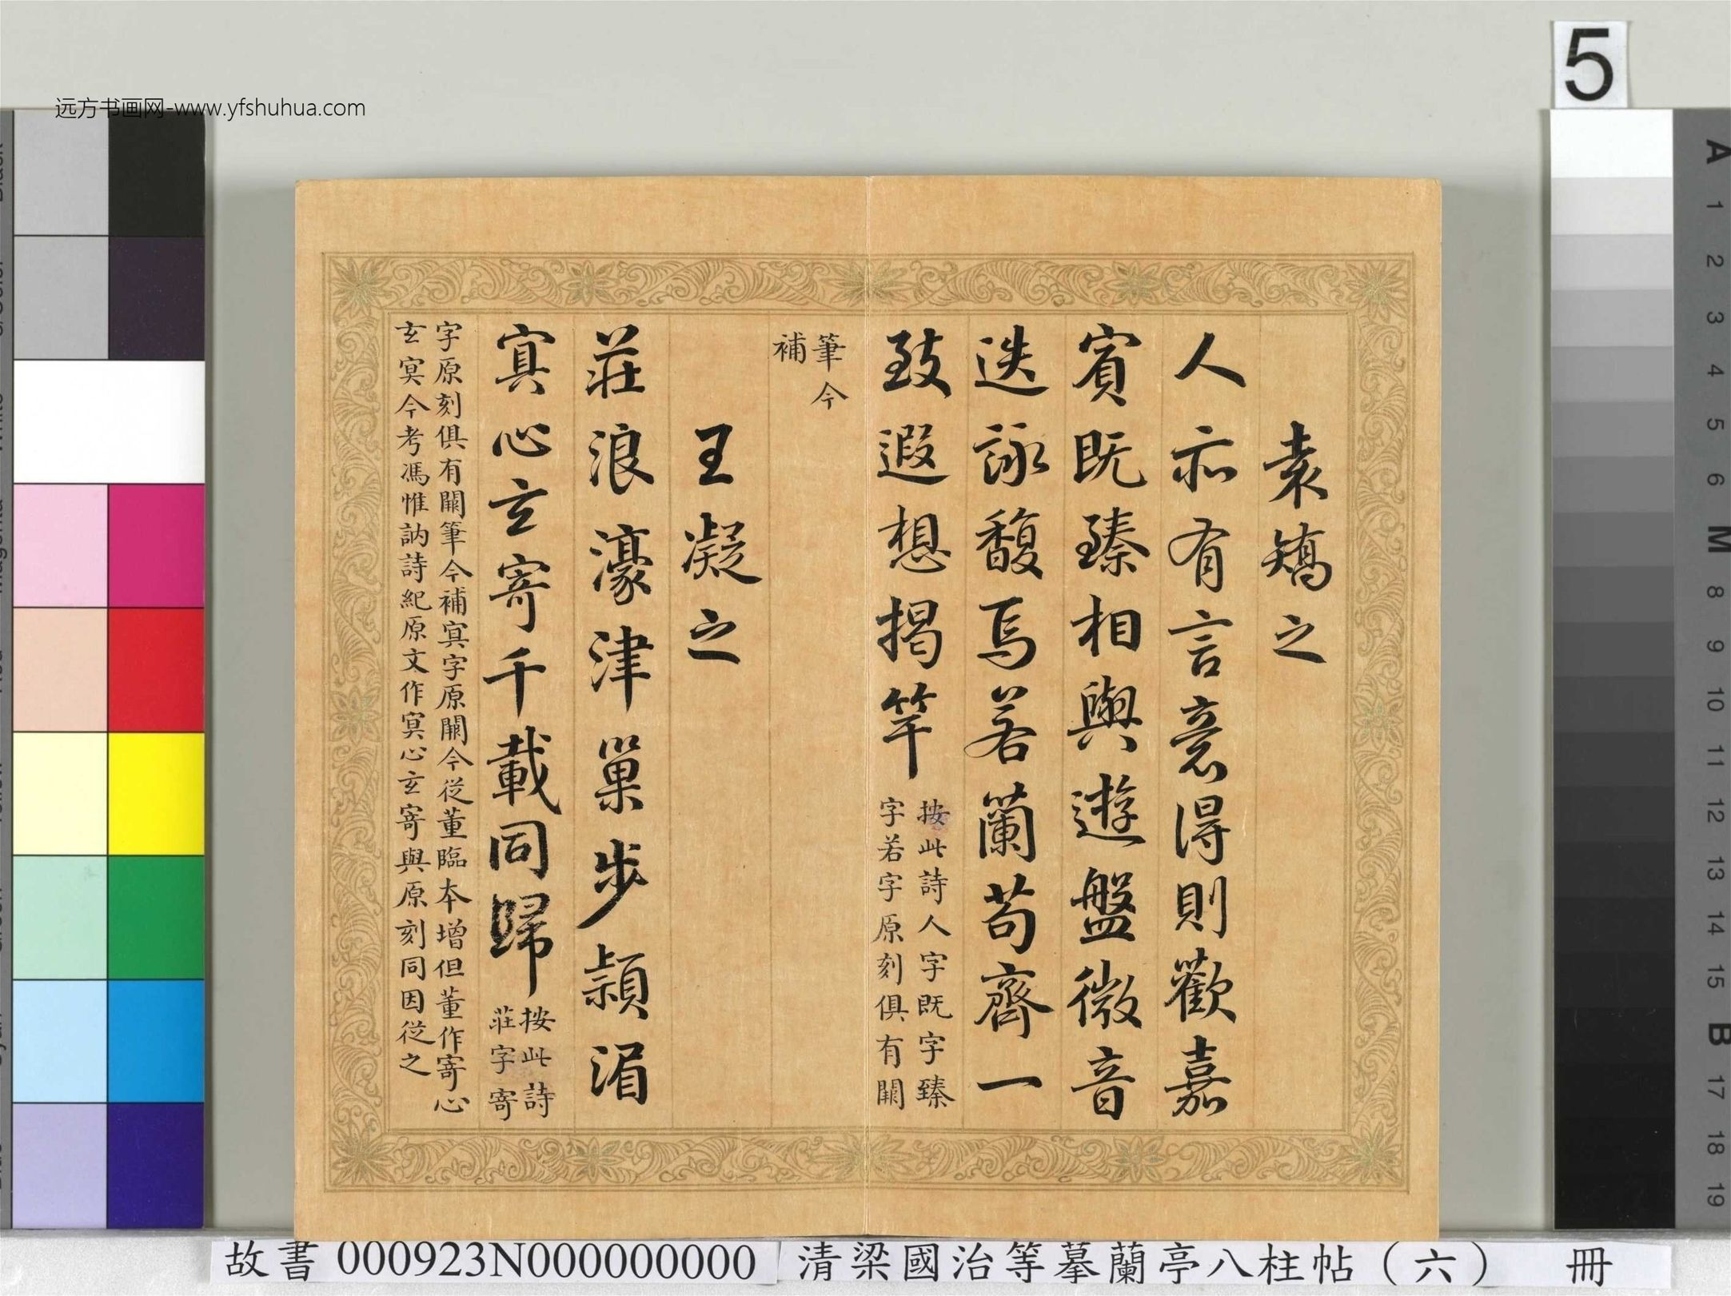 远方书画网-www.yfshuhua.com
5
袁矯之
人亦有言意得則歡嘉
賓既臻相與遊盤微音
迭詠馥焉若蘭苟齊一
致遐想揭竿
按此詩人字既字臻
字若字原刻俱有闕
筆今
補
王凝之
莊浪濠津巢步潁湄
冥心玄寄千載同歸
按此詩
莊字寄
字原刻俱有闕筆今補冥字原闕今從董臨本增但董作寄心
玄冥今考馮惟訥詩紀原文作冥心玄寄與原刻同因從之
A
1
2
3
4
5
6
M
8
9
10
11
12
13
14
15
B
17
18
19
故書 000923N000000000
清梁國治等摹蘭亭八柱帖（六） 冊